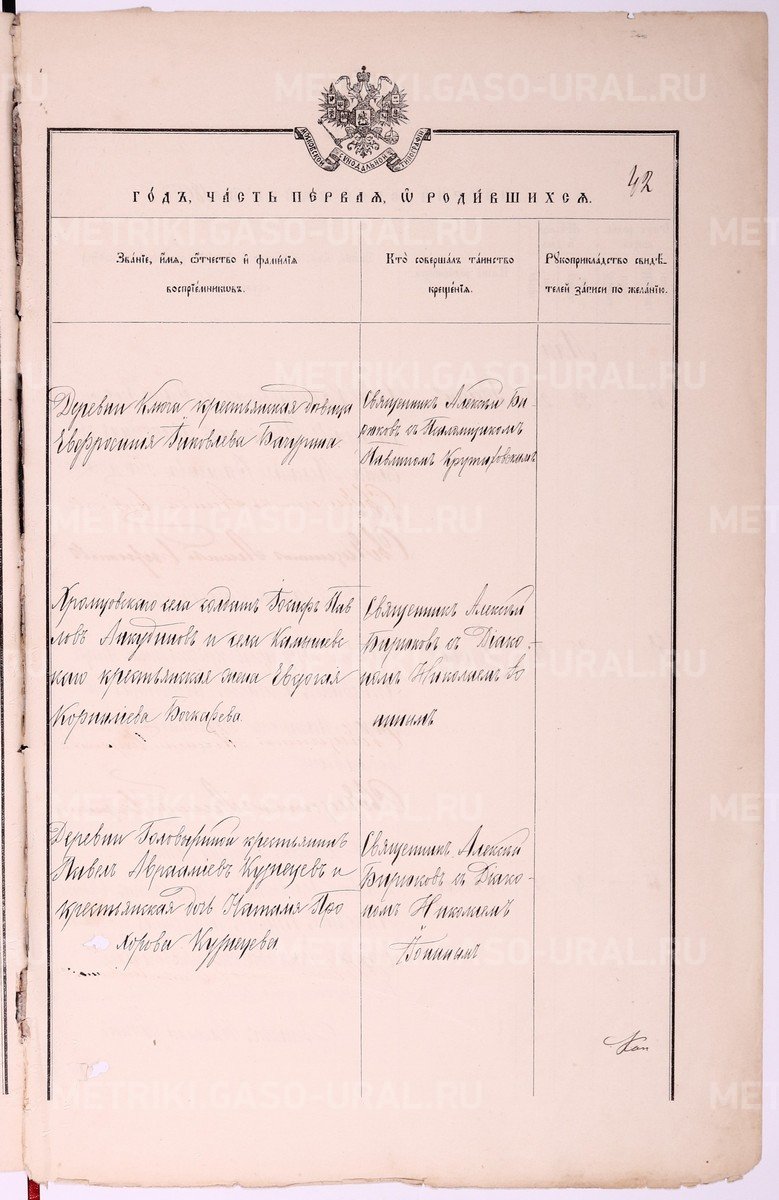 METRIKI.GASO-URAL.RU
МОСКОВСКОЙ СѴНОДАЛЬНОЙ ТИПОГРАФІИ
42
ГО́ДЪ, ЧА́СТЬ ПЕ́РВАЯ, Ѡ҆ РОДИ́ВШИХСЯ.
Зва́нїе, и҆́мя, ѻ҆́тчество и҆ фами́лїя
воспрїе́мникѡвъ.
Кто̀ соверша́лъ та́инство
креще́нїя.
Рꙋкоприкла́дство свидѣ́-
телей за́писи по жела́нїю.
Деревни Ключа крестьянская дѣвица
Евфросинія Яковлева Багурина.
Священникъ Алексѣй Би-
рюковъ съ Псаломщикомъ
Павлиномъ
Храмцовскаго села солдатъ Іосифъ Пав
ловъ Лакудиновъ и села Камышев
скаго крестьянская жена Евдокія
Корниліева Бочкарева.
Священникъ Алексѣй
Бирюковъ съ Діако-
номъ Николаемъ Іо
Деревни Головыриной крестьянинъ
Павелъ Авраміевъ Кузнецевъ и
крестьянская дочь Наталія Про
хорова Кузнецева
Священникъ Алексѣй
Бирюковъ съ Діако-
номъ Николаемъ